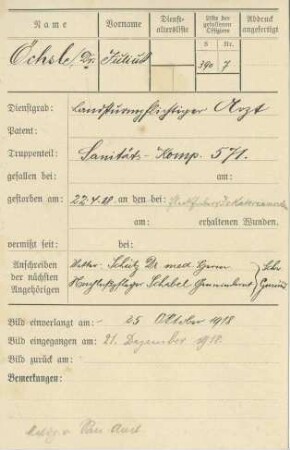 Name Vorname Dienst-altersliste Liste der gefallenen Offiziere Abdruck angefertigt
S Nr.
Öchsle, Dr. Julius 390 7
Dienstgrad: Landsturmpflichtiger Arzt
Patent:
Truppenteil: Sanitäts-Komp. 571.
gefallen bei: am:
gestorben am: 22.4.18 an den bei
am: erhaltenen Wunden.
vermißt seit: bei:
Anschreiben der nächsten Angehörigen
Schütz Dr. med.
Bild einverlangt am: 25 Oktober 1918
Bild eingegangen am: 21. Dezember 1918.
Bild zurück am:
Bemerkungen: